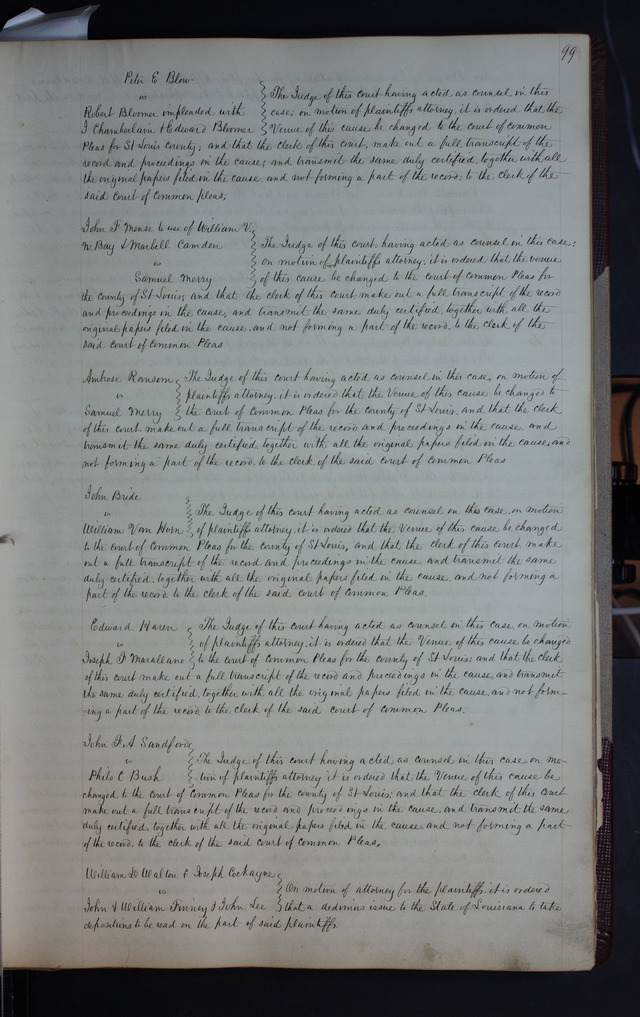 99
Peter E Blow
vs
Robert Bloomer impleaded with
J Chamberlain & Edward Bloomer
The Judge of this court having acted as counsel in this
case; on motion of plaintiffs attorney, it is ordered that the
Venue of this cause be changed to the court of common
Pleas for St Louis County; and that the clerk of this court, make out a full transcript of the
record and proceedings in the cause; and transmit the same duly certified, together with all
the original papers filed in the cause and not forming a part of the record; to the clerk of the
said court of common pleas;
John F Mense to use of William V.
W. Bay & Marbell Camden
vs
Samuel Merry
The Judge of this court, having acted as counsel in this case;
on motion of plaintiffs attorney; it is ordered that the venue
of this cause be changed to the court of Common Pleas for
the county of St Louis; and that the clerk of this court make out a full transcript of the record
and proceedings in the cause, and transmit the same duly certified, together with all the
original papers filed in the cause, and not forming a part of the record, to the clerk of the
said court of Common Pleas
Ambrose Ransom
vs
Samuel Merry
The Judge of this court having acted as counsel in this case, on motion of
plaintiffs attorney, it is ordered that the Venue of this cause be changed to
the court of Common Pleas for the county of St Louis, and that the clerk
of this court, make out a full transcript of the record and proceedings in the cause, and
transmit the same duly certified, together with all the original papers filed in the cause, and
not forming a part of the record, to the clerk of the said court of Common Pleas
John Bride
vs
William Van Horn
The Judge of this court having acted as counsel in this case, on motion
of plaintiffs attorney, it is ordered that the Venue of this cause be changed
to the court of Common Pleas for the county of St Louis, and that the clerk of this court make
out a full transcript of the record and proceedings in the cause and transmit the same
duly certified, together with all the original papers filed in the cause, and not forming a
part of the record to the clerk of the said court of Common Pleas.
Edward Haren
vs
Joseph P
The Judge of this court having acted as counsel in this case on motion
of plaintiffs attorney, it is ordered that the Venue of this cause be changed
to the court of Common Pleas for the county of St Louis; and that the clerk
of this court make out a full transcript of the record and proceedings in the cause, and transmit
the same duly certified, together with all the original papers filed in the cause, and not form-
ing a part of the record to the clerk of the said court of Common Pleas.
John F. A Sandford
vs
Philo C Bush
The Judge of this court having acted as counsel in this case on mo-
tion of plaintiffs attorney it is ordered that the Venue of this cause be
changed to the court of Common Pleas for the county of St Louis; and that the clerk of this court
make out a full transcript of the record and proceedings in the cause, and transmit the same
duly certified, together with all the original papers filed in the cause and not forming a part
of the record, to the clerk of the said court of Common Pleas,
William D Walton & Joseph Cockayne
vs
John & William Finney & John Lee
On motion of attorney for the plaintiffs it is ordered
that a dedimus issue to the State of Louisiana to take
depositions to be read on the part of said plaintiffs